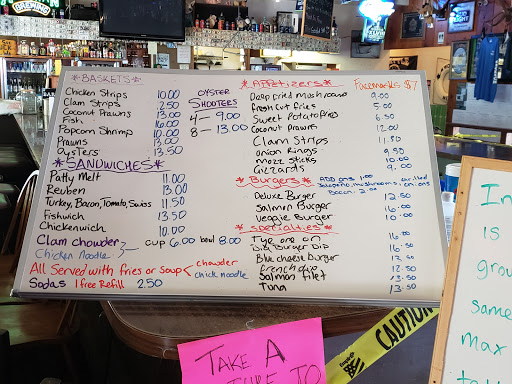 BREWING
* BASKETS *
Chicken Strips 10.00
Clam Strips 12.50
Coconut Prawns 13.00
Fish 16.00
Popcorn Shrimp 10.00
Prawns 13.00
Oysters 13.50
OYSTER
SHOOTERS
4 - 9.00
8 - 13.00
* SANDWICHES *
Patty Melt 11.00
Reuben 13.00
Turkey, Bacon, Tomato, Swiss 11.50
Fishwich 13.50
Chickenwich 10.00
Clam chowder
Chicken Noodle
cup 6.00 bowl 8.00
All Served with fries or soup
chowder
chick noodle
Sodas 1 free Refill 2.50
* Appetizers *
Facemasks $7
Deep fried mushrooms 9.00
fresh cut fries 5.00
Sweet Potato fries 6.50
Coconut Prawns 12.00
Clam Strips 11.50
onion Rings 9.50
mozz sticks 10.00
Gizzards 9.00
* Burgers *
ADD ons 1.00 grilled
Jalapeño, mushrooms, onions
Bacon 2.00
Deluxe Burger 12.50
Salmon Burger 16.00
Veggie Burger 10.00
* specialties *
Tye one on 16.00
Big Burger Dip 16.50
Blue cheese burger 13.50
french dip 12.50
Salmon filet 13.50
Tuna 13.50
TAKE A
TO
CAUTION
In
is
grou
same
max